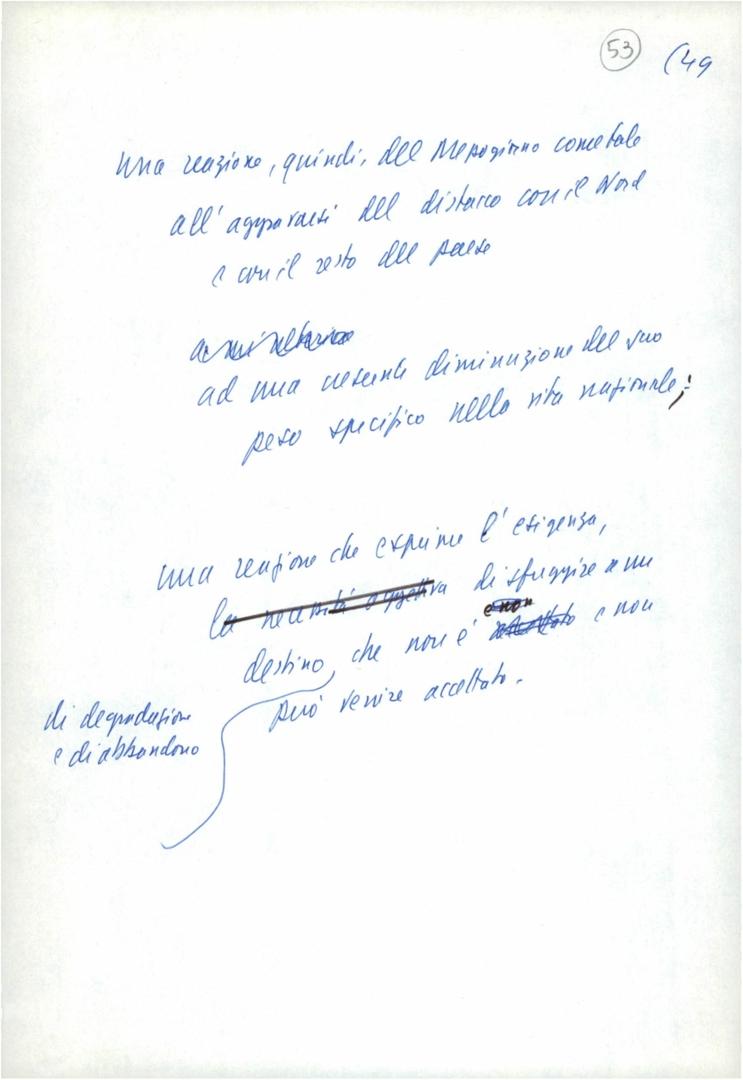 53 (49
una reazione, quindi, del Mezzogiorno come tale
all'aggravarsi del distacco con il Nord
e con il resto del paese
ad una crescente diminuzione del suo
peso specifico nella vita nazionale;
una reazione che esprime l'esigenza,
la necessità oggettiva di sfuggire a un
e non
destino, che non è e non
può venire accettato.
di degradazione
e di abbandono